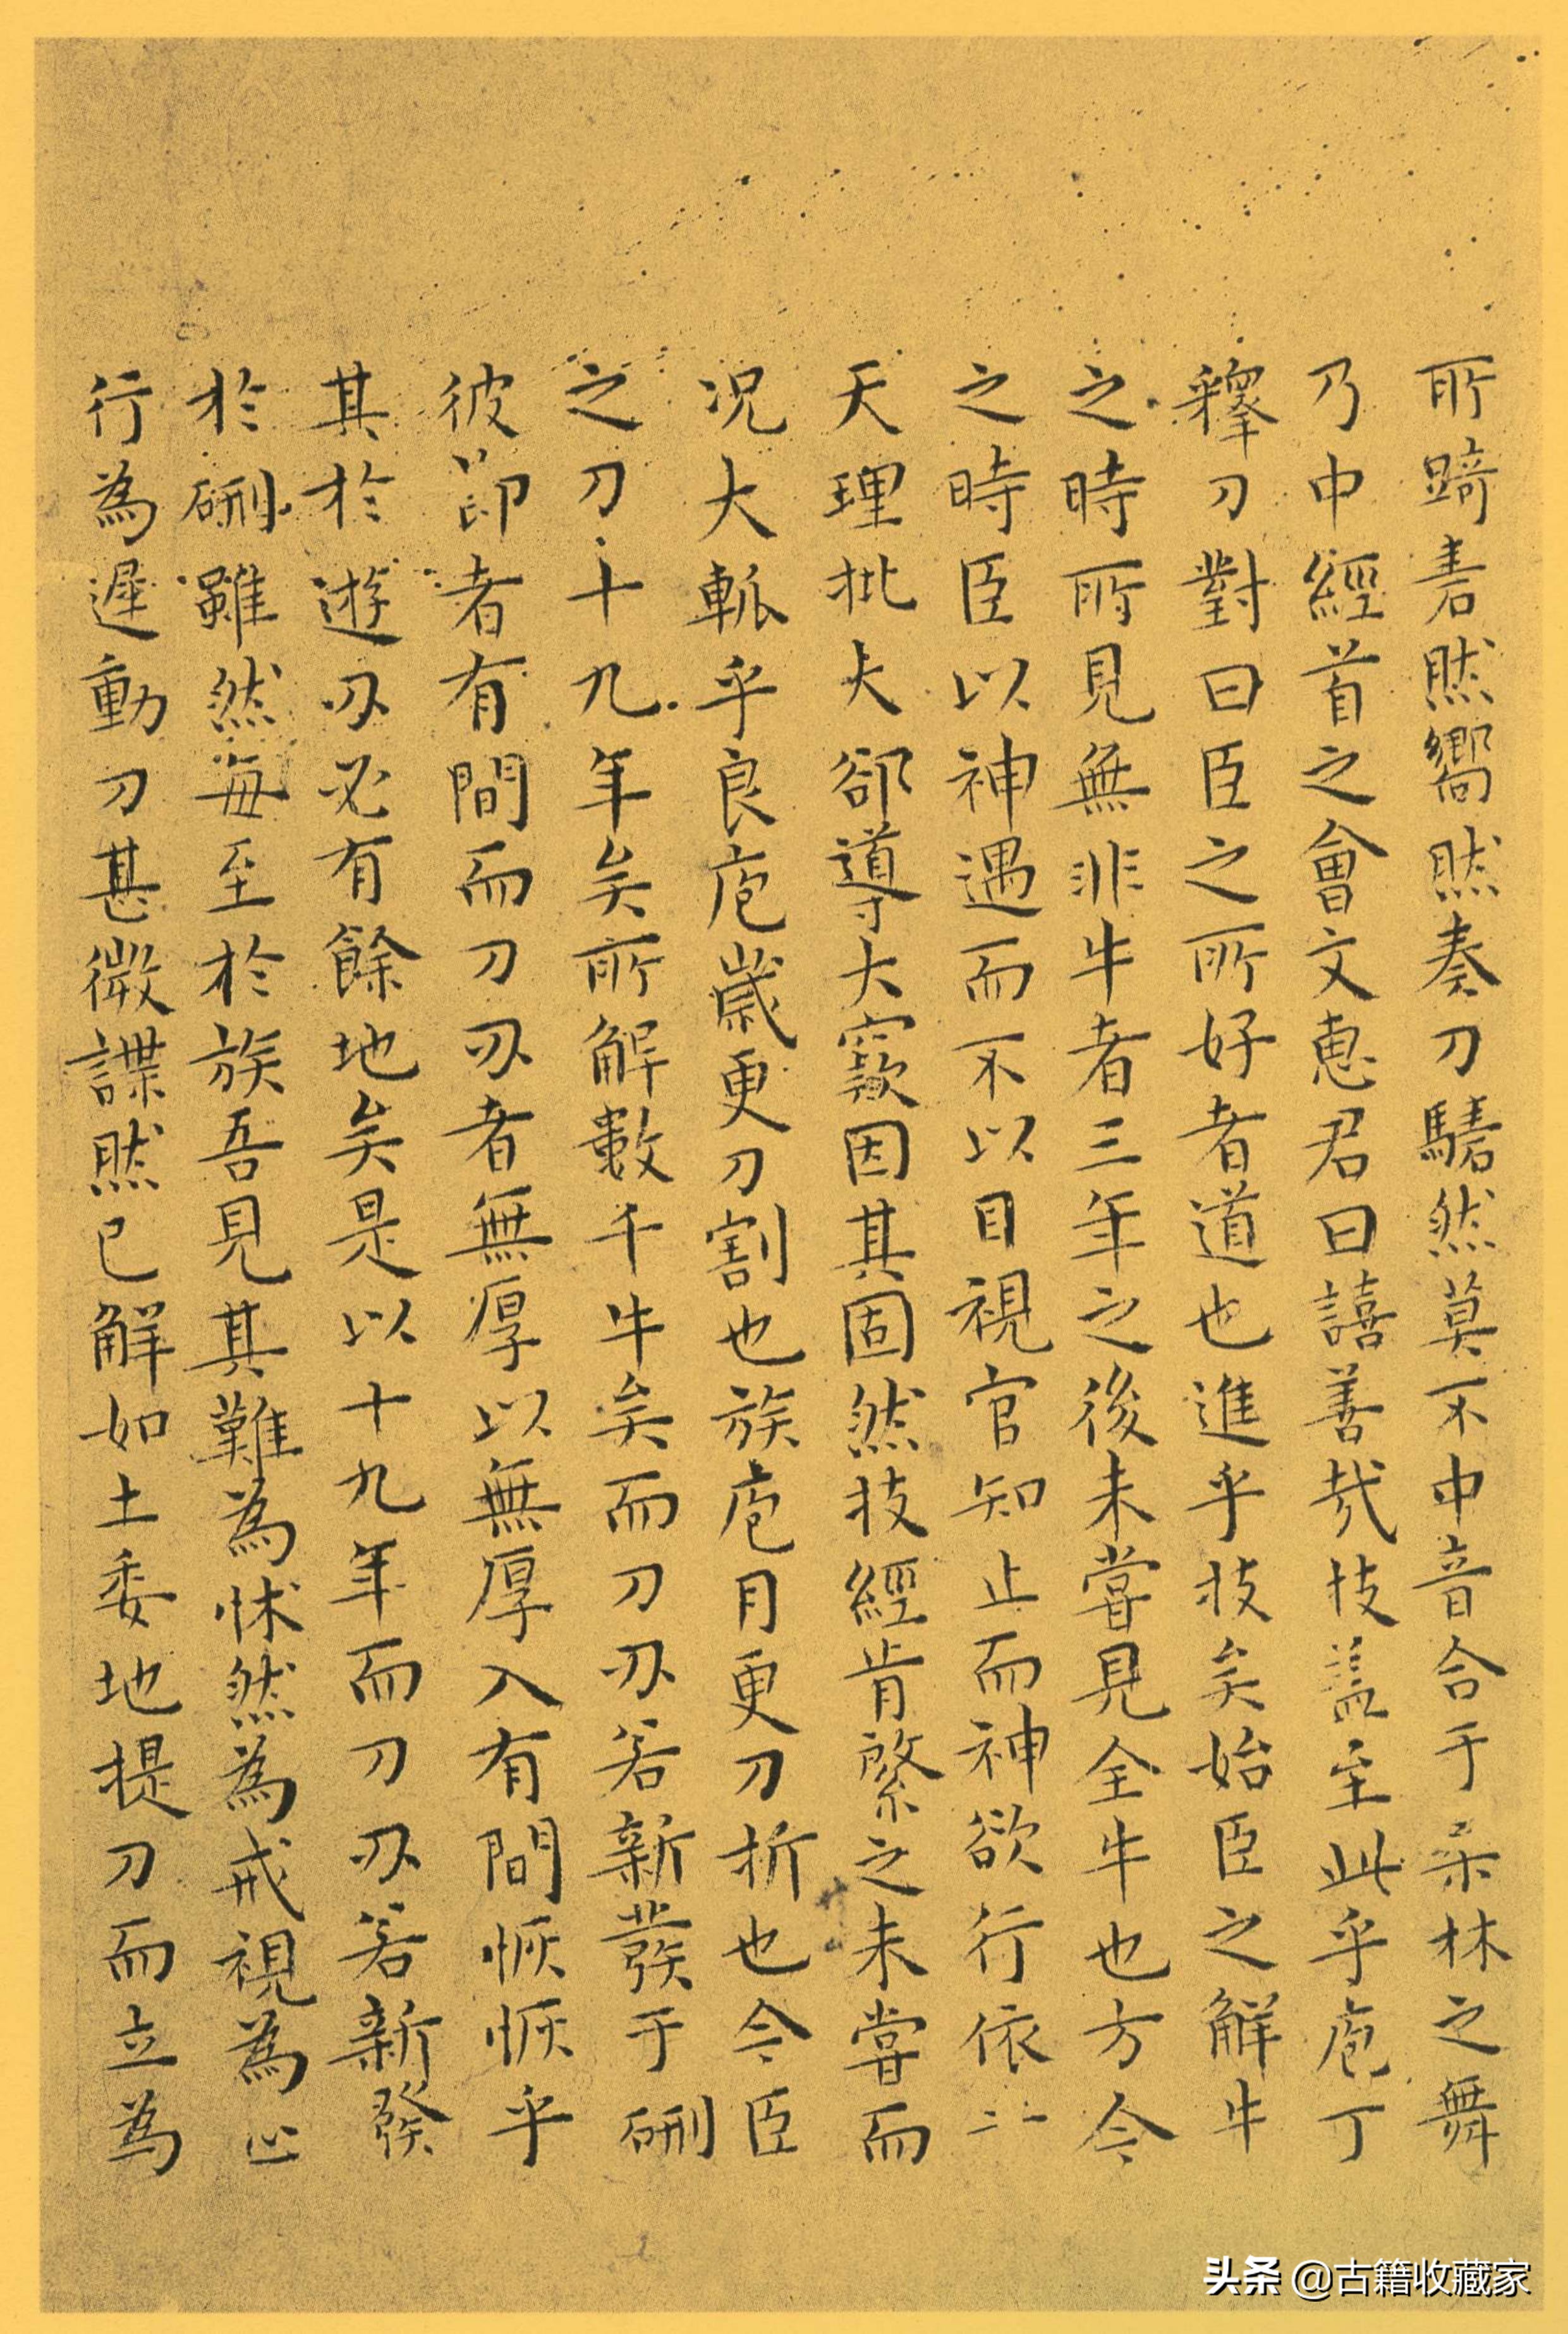 所踦砉然嚮然奏刀騞然莫不中音合于桑林之舞
乃中經首之會文惠君曰譆善哉技蓋至此乎庖丁
釋刀對曰臣之所好者道也進乎技矣始臣之解牛
之時所見無非牛者三年之後未嘗見全牛也方今
之時臣以神遇而不以目視官知止而神欲行依
天理批大郤導大窾因其固然技經肯綮之未嘗而
况大軱乎良庖歲更刀割也族庖月更刀折也今臣
之刀十九年矣所解數千牛矣而刀刃若新發于硎
彼節者有間而刀刃者無厚以無厚入有間恢恢乎
其於遊刃必有餘地矣是以十九年而刀刃若新發
於硎雖然每至於族吾見其難為怵然為戒視為止
行為遲動刀甚微諜然已解如土委地提刀而立為
头条 @古籍收藏家